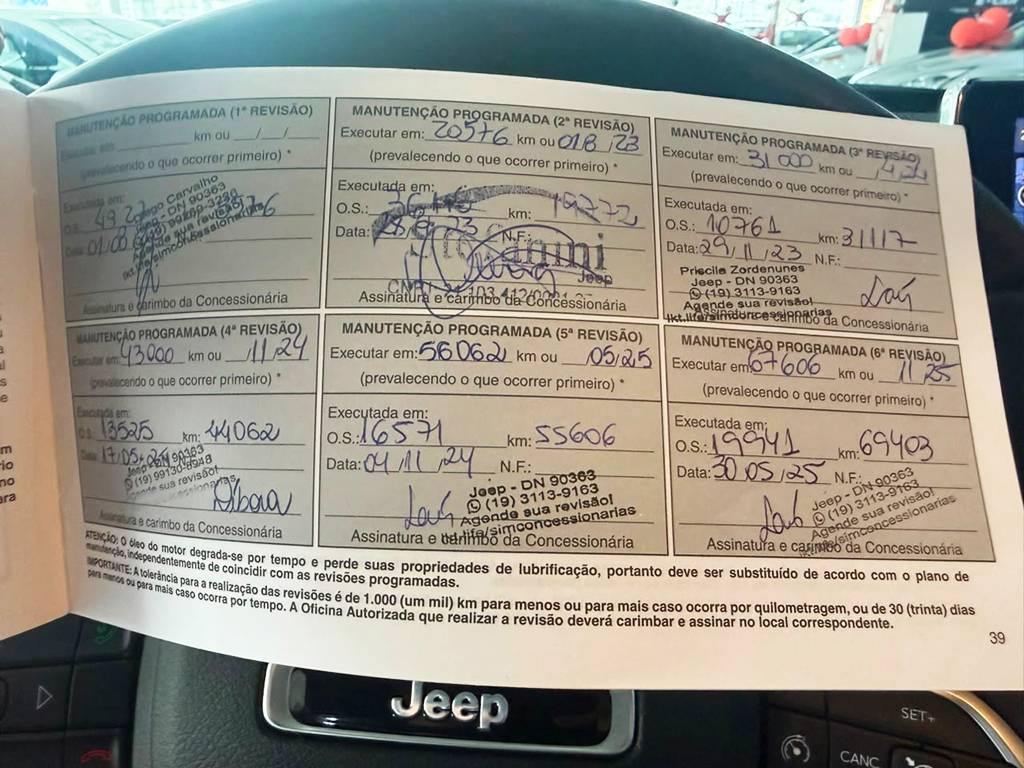 MANUTENÇÃO PROGRAMADA (1ª REVISÃO)
Executar em: km ou / /
(prevalecendo o que ocorrer primeiro) *
Executada em:
O.S.
Data
Assinatura e carimbo da Concessionária
MANUTENÇÃO PROGRAMADA (2ª REVISÃO)
Executar em: 20576 km ou 01 8 23
(prevalecendo o que ocorrer primeiro) *
Executada em:
O.S.: km: 19772
Data: N.F.:
Jeep
Assinatura e carimbo da Concessionária
MANUTENÇÃO PROGRAMADA (3ª REVISÃO)
Executar em: 31000 km ou
(prevalecendo o que ocorrer primeiro) *
Executada em:
O.S.: 10761 km: 31117
Data: 29/11/23 N.F.:
Priscila Zordenunes
Jeep - DN 90363
(19) 3113-9163
Agende sua revisão!
lkt.life/simconcessionarias
Assinatura e carimbo da Concessionária
MANUTENÇÃO PROGRAMADA (4ª REVISÃO)
Executar em: 43000 km ou 11/24
(prevalecendo o que ocorrer primeiro) *
Executada em:
O.S. 13525 km: 44062
Data 17/05/24
DN 90363
Agende sua revisão!
Assinatura e carimbo da Concessionária
MANUTENÇÃO PROGRAMADA (5ª REVISÃO)
Executar em: 56062 km ou 05/25
(prevalecendo o que ocorrer primeiro) *
Executada em:
O.S.: 16571 km: 55606
Data: 04/11/24 N.F.:
Jeep - DN 90363
(19) 3113-9163
Agende sua revisão!
lkt.life/simconcessionarias
Assinatura e carimbo da Concessionária
MANUTENÇÃO PROGRAMADA (6ª REVISÃO)
Executar em: 67606 km ou 11/25
(prevalecendo o que ocorrer primeiro) *
Executada em:
O.S.: 19941 km: 69403
Data: 30/05/25 N.F.:
Jeep - DN 90363
(19) 3113-9163
Agende sua revisão!
lkt.life/simconcessionarias
Assinatura e carimbo da Concessionária
ATENÇÃO: O óleo do motor degrada-se por tempo e perde suas propriedades de lubrificação, portanto deve ser substituído de acordo com o plano de
manutenção, independentemente de coincidir com as revisões programadas.
IMPORTANTE: A tolerância para a realização das revisões é de 1.000 (um mil) km para menos ou para mais caso ocorra por quilometragem, ou de 30 (trinta) dias
para menos ou para mais caso ocorra por tempo. A Oficina Autorizada que realizar a revisão deverá carimbar e assinar no local correspondente.
39
Jeep
SET+
CANC